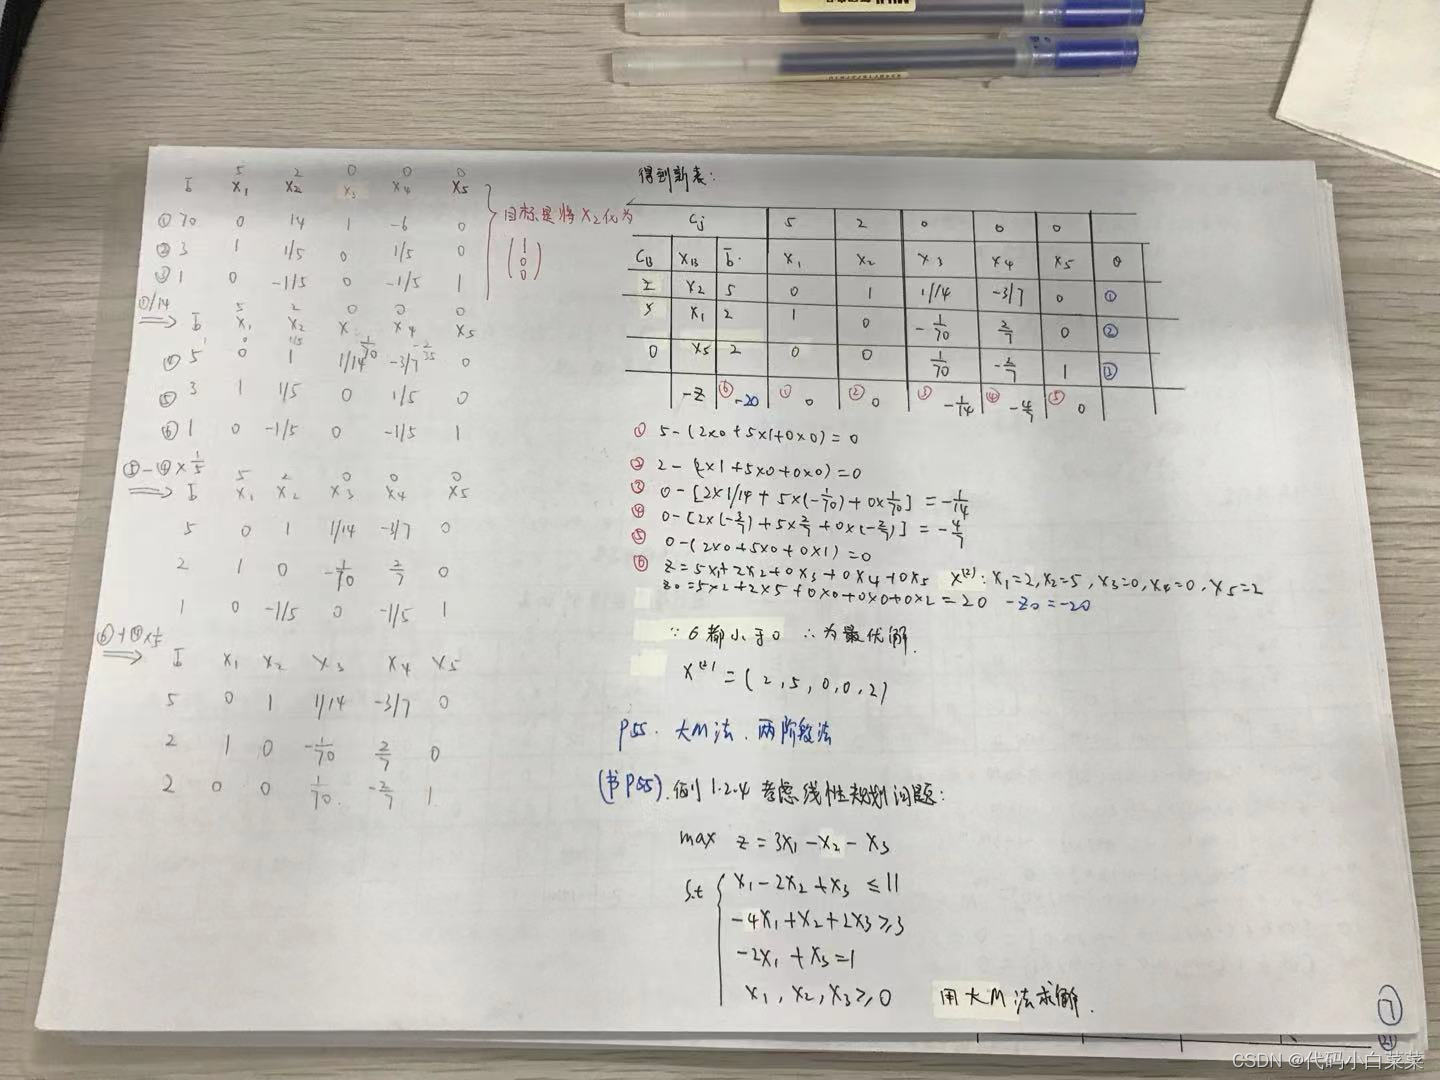 5 2 0 0 0
b̄ x₁ x₂ x₃ x₄ x₅
① 70 0 14 1 -6 0
② 3 1 1/5 0 1/5 0
③ 1 0 -1/5 0 -1/5 1
目标是将x₂化为
(1 0 0)
①/14
5 2 0 0 0
b̄ x₁ x₂ x x₄ x₅
1/70 -2/35
④ 5 0 1 1/14 -3/7 0
⑤ 3 1 1/5 0 1/5 0
⑥ 1 0 -1/5 0 -1/5 1
⑤-④×1/5
5 2 0 0 0
b̄ x₁ x₂ x₃ x₄ x₅
5 0 1 1/14 -3/7 0
2 1 0 -1/70 2/7 0
1 0 -1/5 0 -1/5 1
⑥+④×1/5
b̄ x₁ x₂ x₃ x₄ x₅
5 0 1 1/14 -3/7 0
2 1 0 -1/70 2/7 0
2 0 0 1/70 -2/7 1
得到新表:
Cj 5 2 0 0 0
CB XB b̄ x₁ x₂ x₃ x₄ x₅ θ
2 x₂ 5 0 1 1/14 -3/7 0 ①
5 x₁ 2 1 0 -1/70 2/7 0 ②
0 x₅ 2 0 0 1/70 -2/7 1 ③
-z ⑥ -20 ① 0 ② 0 ③ -1/14 ④ -4/7 ⑤ 0
① 5-(2×0+5×1+0×0)=0
② 2-(2×1+5×0+0×0)=0
③ 0-[2×1/14+5×(-1/70)+0×1/70]=-1/14
④ 0-[2×(-3/7)+5×2/7+0×(-2/7)]=-4/7
⑤ 0-(2×0+5×0+0×1)=0
⑥ z=5x₁+2x₂+0x₃+0x₄+0x₅ x⁽²⁾: x₁=2,x₂=5,x₃=0,x₄=0,x₅=2
z₀=5×2+2×5+0×0+0×0+0×2=20 -z₀=-20
∵ 6都小于0 ∴为最优解.
x⁽²⁾=(2,5,0,0,2)
P55. 大M法. 两阶段法
(书P55).例1.2.4 考虑线性规划问题:
max z=3x₁-x₂-x₃
s.t x₁-2x₂+x₃≤11
-4x₁+x₂+2x₃≥3
-2x₁+x₃=1
x₁,x₂,x₃≥0 用大M法求解.
⑦
㉑
CSDN @代码小白菜菜